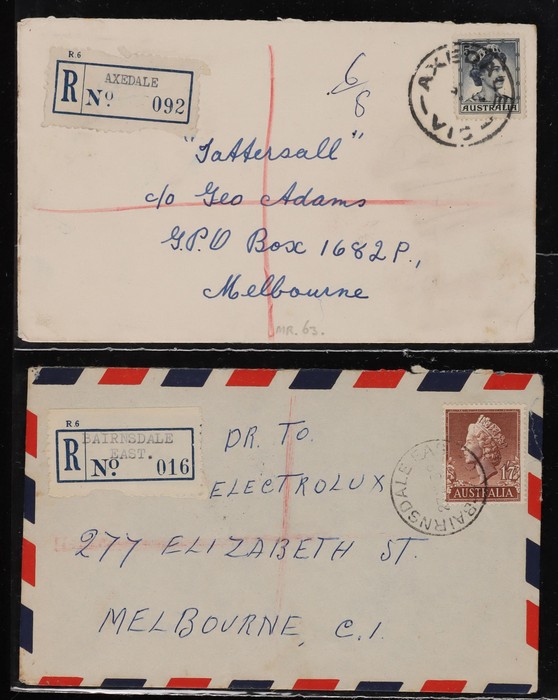 R 6
R No AXEDALE 092
6/8
AXEDALE
VIC
AUSTRALIA
"Tattersall"
c/o Geo Adams
G.P.O Box 1682P.,
Melbourne
R 6
R No BAIRNSDALE EAST. 016
BAIRNSDALE EAST
1/7
AUSTRALIA
DR. TO.
ELECTROLUX
277 ELIZABETH ST.
MELBOURNE, C.1.